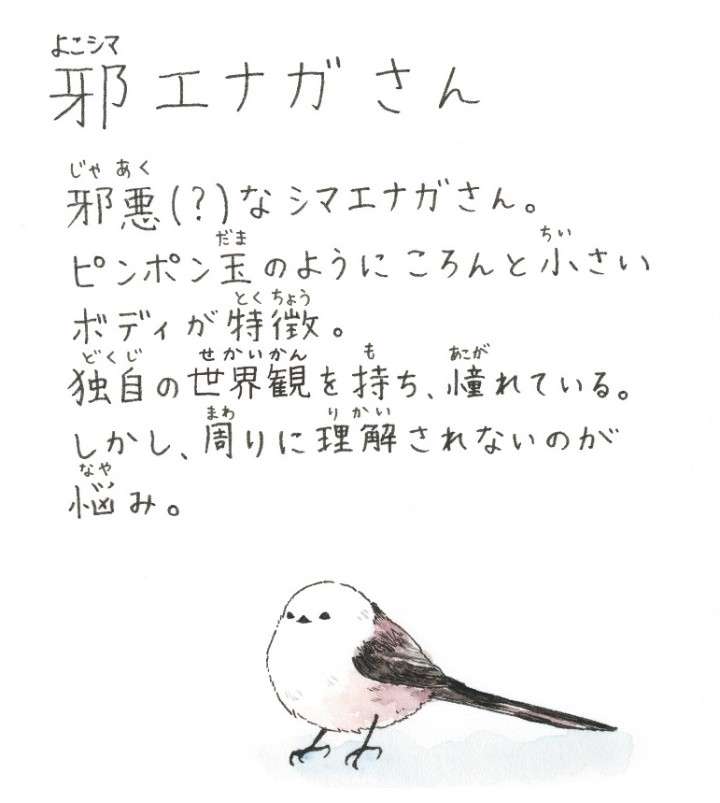 よこシマ
邪エナガさん
じゃあく
邪悪(?)なシマエナガさん。
だま ちい
ピンポン玉のようにころんと小さい
とくちょう
ボディが特徴。
どくじ せかいかん も あこが
独自の世界観を持ち、憧れている。
まわ りかい
しかし、周りに理解されないのが
なや
悩み。